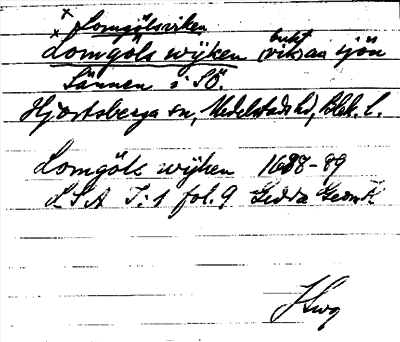 x Lomgölsviken
x Lomgöls wijken (vik) bukt av sjön
Sännen i SÖ.
Hjortsberga sn, Medelstads hd, Blek. l.
Lomgöls wijken 1688-89
LSA I:1 fol. 9 Gedda Geom. K